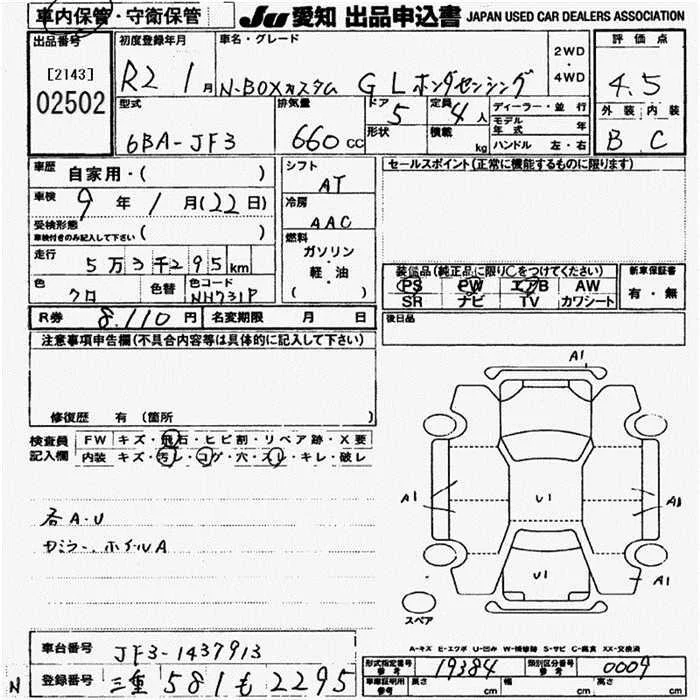 車内保管・守衛保管 JU 愛知 出品申込書 JAPAN USED CAR DEALERS ASSOCIATION
出品番号 初度登録年月 車名・グレード 2WD・4WD 評価点
[2143] R2 1月 N-BOXカスタム G L ホンダセンシング 4.5
02502 型式 排気量 ドア 定員 ディーラー・並行 外装 内装
6BA-JF3 660cc 5 4人 モデル年式 年 B C
形状 積載 kg ハンドル 左・右
車歴 自家用・( ) シフト AT セールスポイント(正常に機能するものに限ります)
車検 9年1月(22日) 冷房 AAC
受検形態 ( )
車検付きのみ記入して下さい
燃料 ガソリン・軽・油 ( )
走行 5万3千295km 装備品(純正品に限り○をつけてください) 新車保証書
PS PW エアB AW 有・無
色 クロ 色替 色コード NH731P SR ナビ TV カワシート
R券 8,110円 名変期限 月 日 後日品
注意事項申告欄(不具合内容等は具体的に記入して下さい)
A1
修復歴 有 (箇所
検査員 FW キズ・飛石・ヒビ割・リペア跡・X要
記入欄 内装 キズ・汚レ・コゲ・穴・スレ・キレ・破レ
A1 U1 A1
各A・U
カミラー、ホイルA
U1 A1
スペア
A-キズ E-エクボ U-凹み W-補修跡 S-サビ C-腐食 XX-交換済
車台番号 JF3-1437913
型式指定番号 参考 19384 類別区分番号 参考 0009
N 登録番号 三重 581 も 2295
車庫証明用 参考 長さ cm 幅 cm 高さ cm